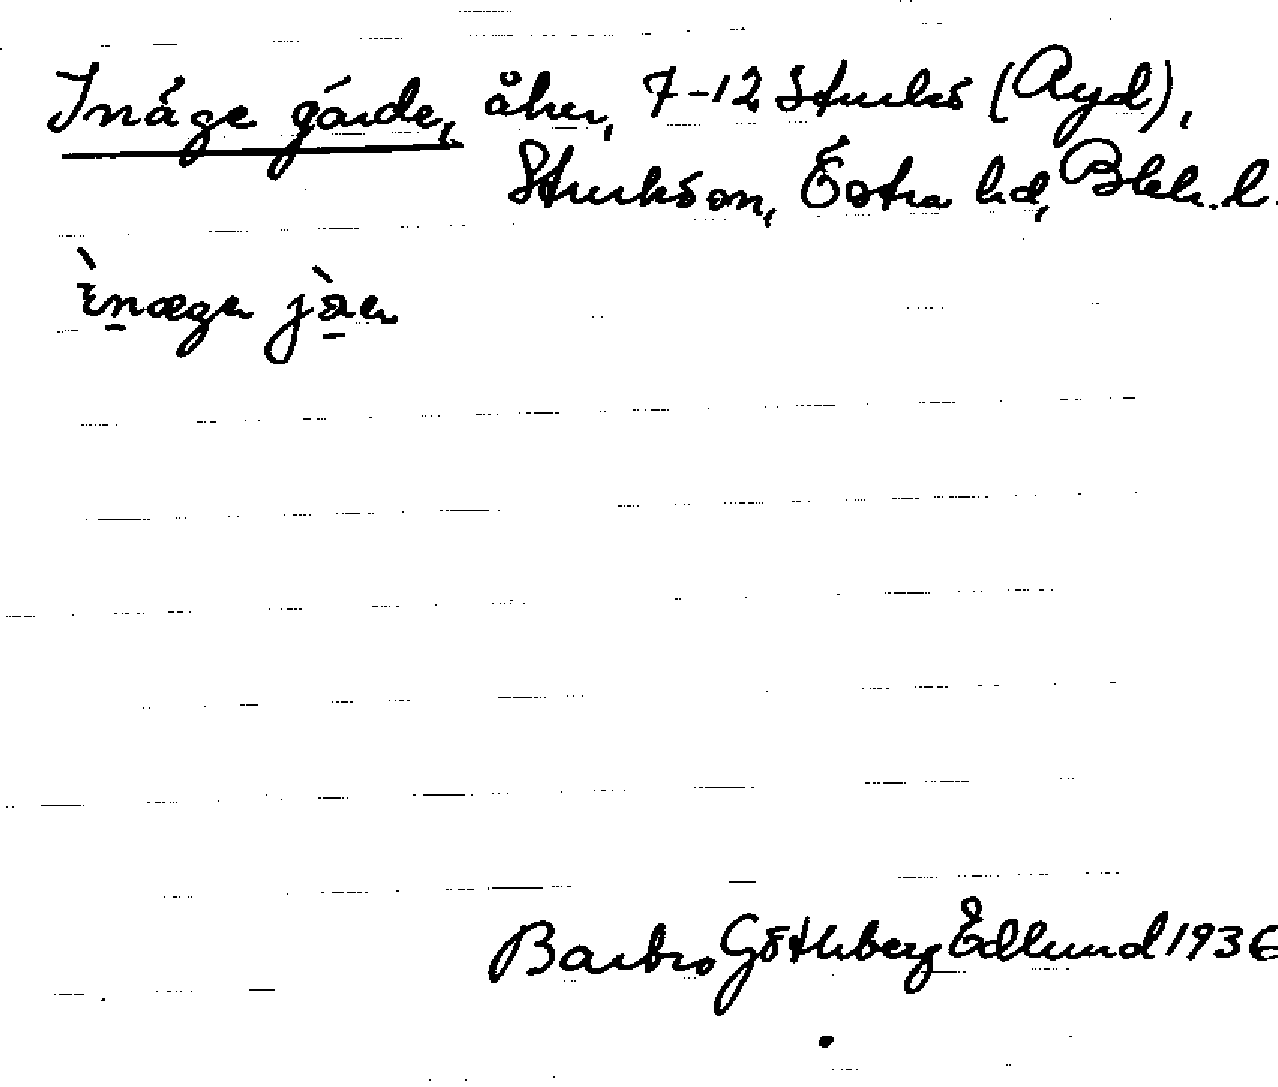 Inäge gärde, åker, 7-12 Sturkö (Ryd),
Sturköön, Östra hd, Blek. l.
Barbro Göthberg Edlund 1936